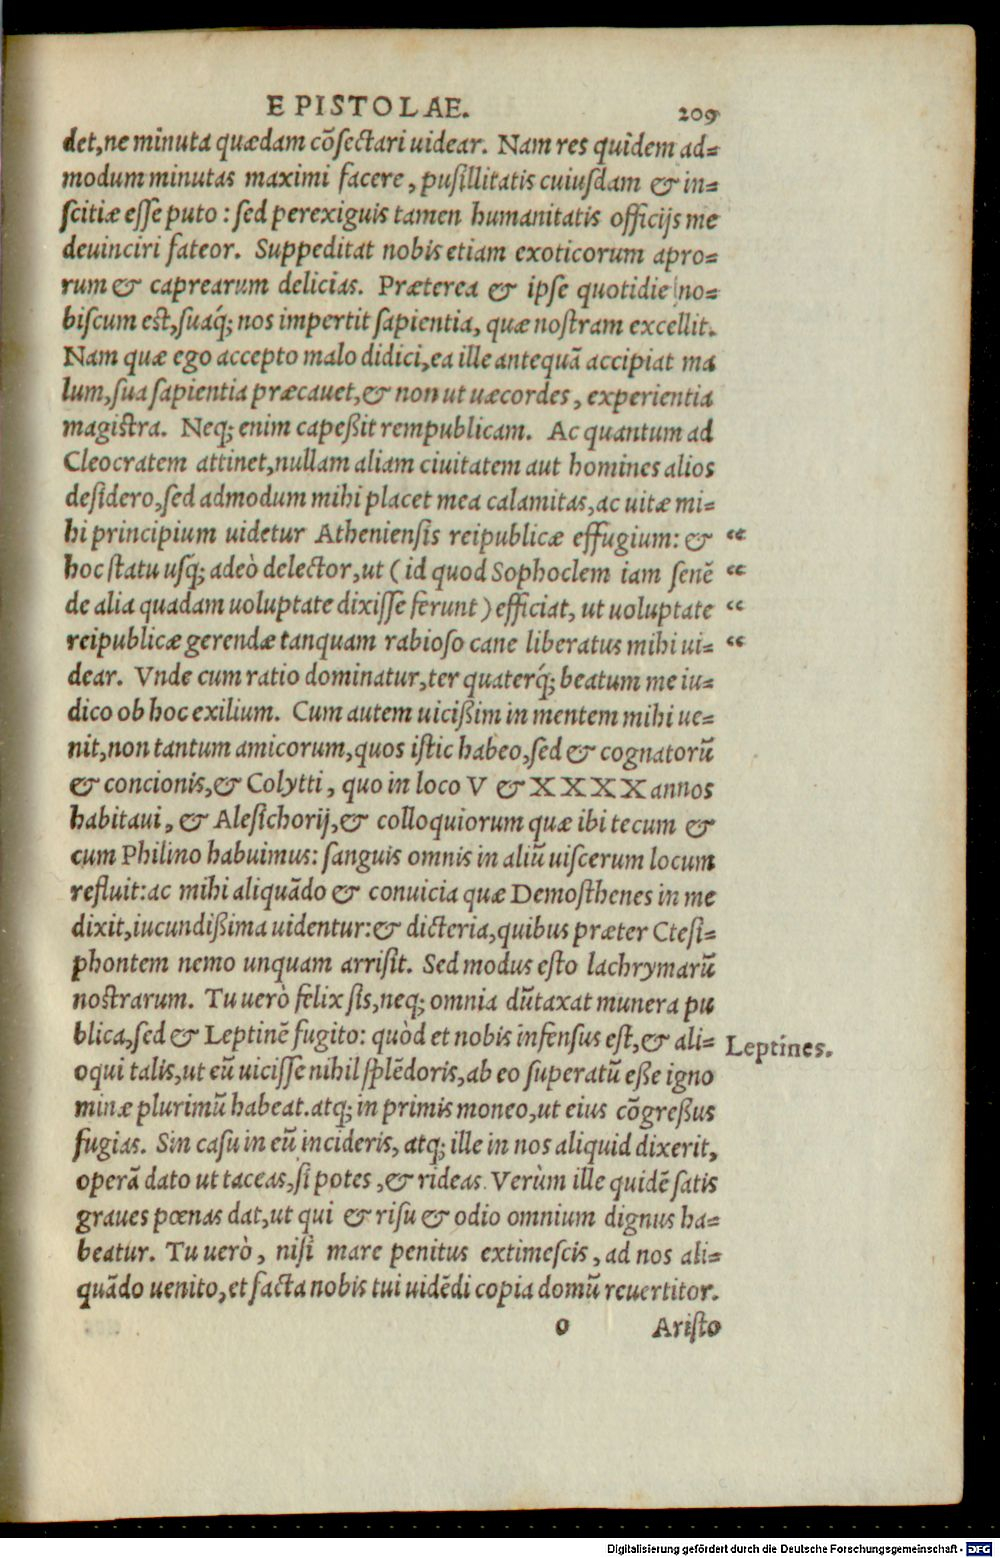 EPISTOLAE. 209
det, ne minuta quædam cõſectari uidear. Nam res quidem ad=
modum minutas maximi facere, puſillitatis cuiuſdam & in=
ſcitiæ eſſe puto: ſed perexiguis tamen humanitatis officijs me
deuinciri fateor. Suppeditat nobis etiam exoticorum apro=
rum & caprearum delicias. Præterea & ipſe quotidie no=
biſcum eſt, ſuaq́; nos impertit ſapientia, quæ noſtram excellit.
Nam quæ ego accepto malo didici, ea ille antequã accipiat ma
lum, ſua ſapientia præcauet, & non ut uæcordes, experientia
magiſtra. Neq; enim capeßit rempublicam. Ac quantum ad
Cleocratem attinet, nullam aliam ciuitatem aut homines alios
deſidero, ſed admodum mihi placet mea calamitas, ac uitæ mi=
hi principium uidetur Athenienſis reipublicæ effugium: & “
hoc ſtatu uſq; adeò delector, ut (id quod Sophoclem iam ſenẽ “
de alia quadam uoluptate dixiſſe ferunt) efficiat, ut uoluptate “
reipublicæ gerendæ tanquam rabioſo cane liberatus mihi ui= “
dear. Vnde cum ratio dominatur, ter quaterq́; beatum me iu=
dico ob hoc exilium. Cum autem uicißim in mentem mihi ue=
nit, non tantum amicorum, quos iſtic habeo, ſed & cognatorũ
& concionis, & Colytti, quo in loco V & XXXX annos
habitaui, & Aleſichorij, & colloquiorum quæ ibi tecum &
cum Philino habuimus: ſanguis omnis in aliũ uiſcerum locum
refluit: ac mihi aliquãdo & conuicia quæ Demoſthenes in me
dixit, iucundißima uidentur: & dicteria, quibus præter Cteſi=
phontem nemo unquam arriſit. Sed modus eſto lachrymarũ
noſtrarum. Tu uerò felix ſis, neq; omnia dũtaxat munera pu
blica, ſed & Leptinẽ fugito: quòd et nobis infenſus eſt, & ali= Leptines.
oqui talis, ut eũ uiciſſe nihil ſplẽdoris, ab eo ſuperatũ eße igno
minæ plurimũ habeat. atq; in primis moneo, ut eius cõgreßus
fugias. Sin caſu in eũ incideris, atq; ille in nos aliquid dixerit,
operã dato ut taceas, ſi potes, & rideas. Verùm ille quidẽ ſatis
graues pœnas dat, ut qui & riſu & odio omnium dignus ha=
beatur. Tu uerò, niſi mare penitus extimeſcis, ad nos ali=
quãdo uenito, et facta nobis tui uidẽdi copia domũ reuertitor.
o Ariſto
Digitalisierung gefördert durch die Deutsche Forschungsgemeinschaft - DFG